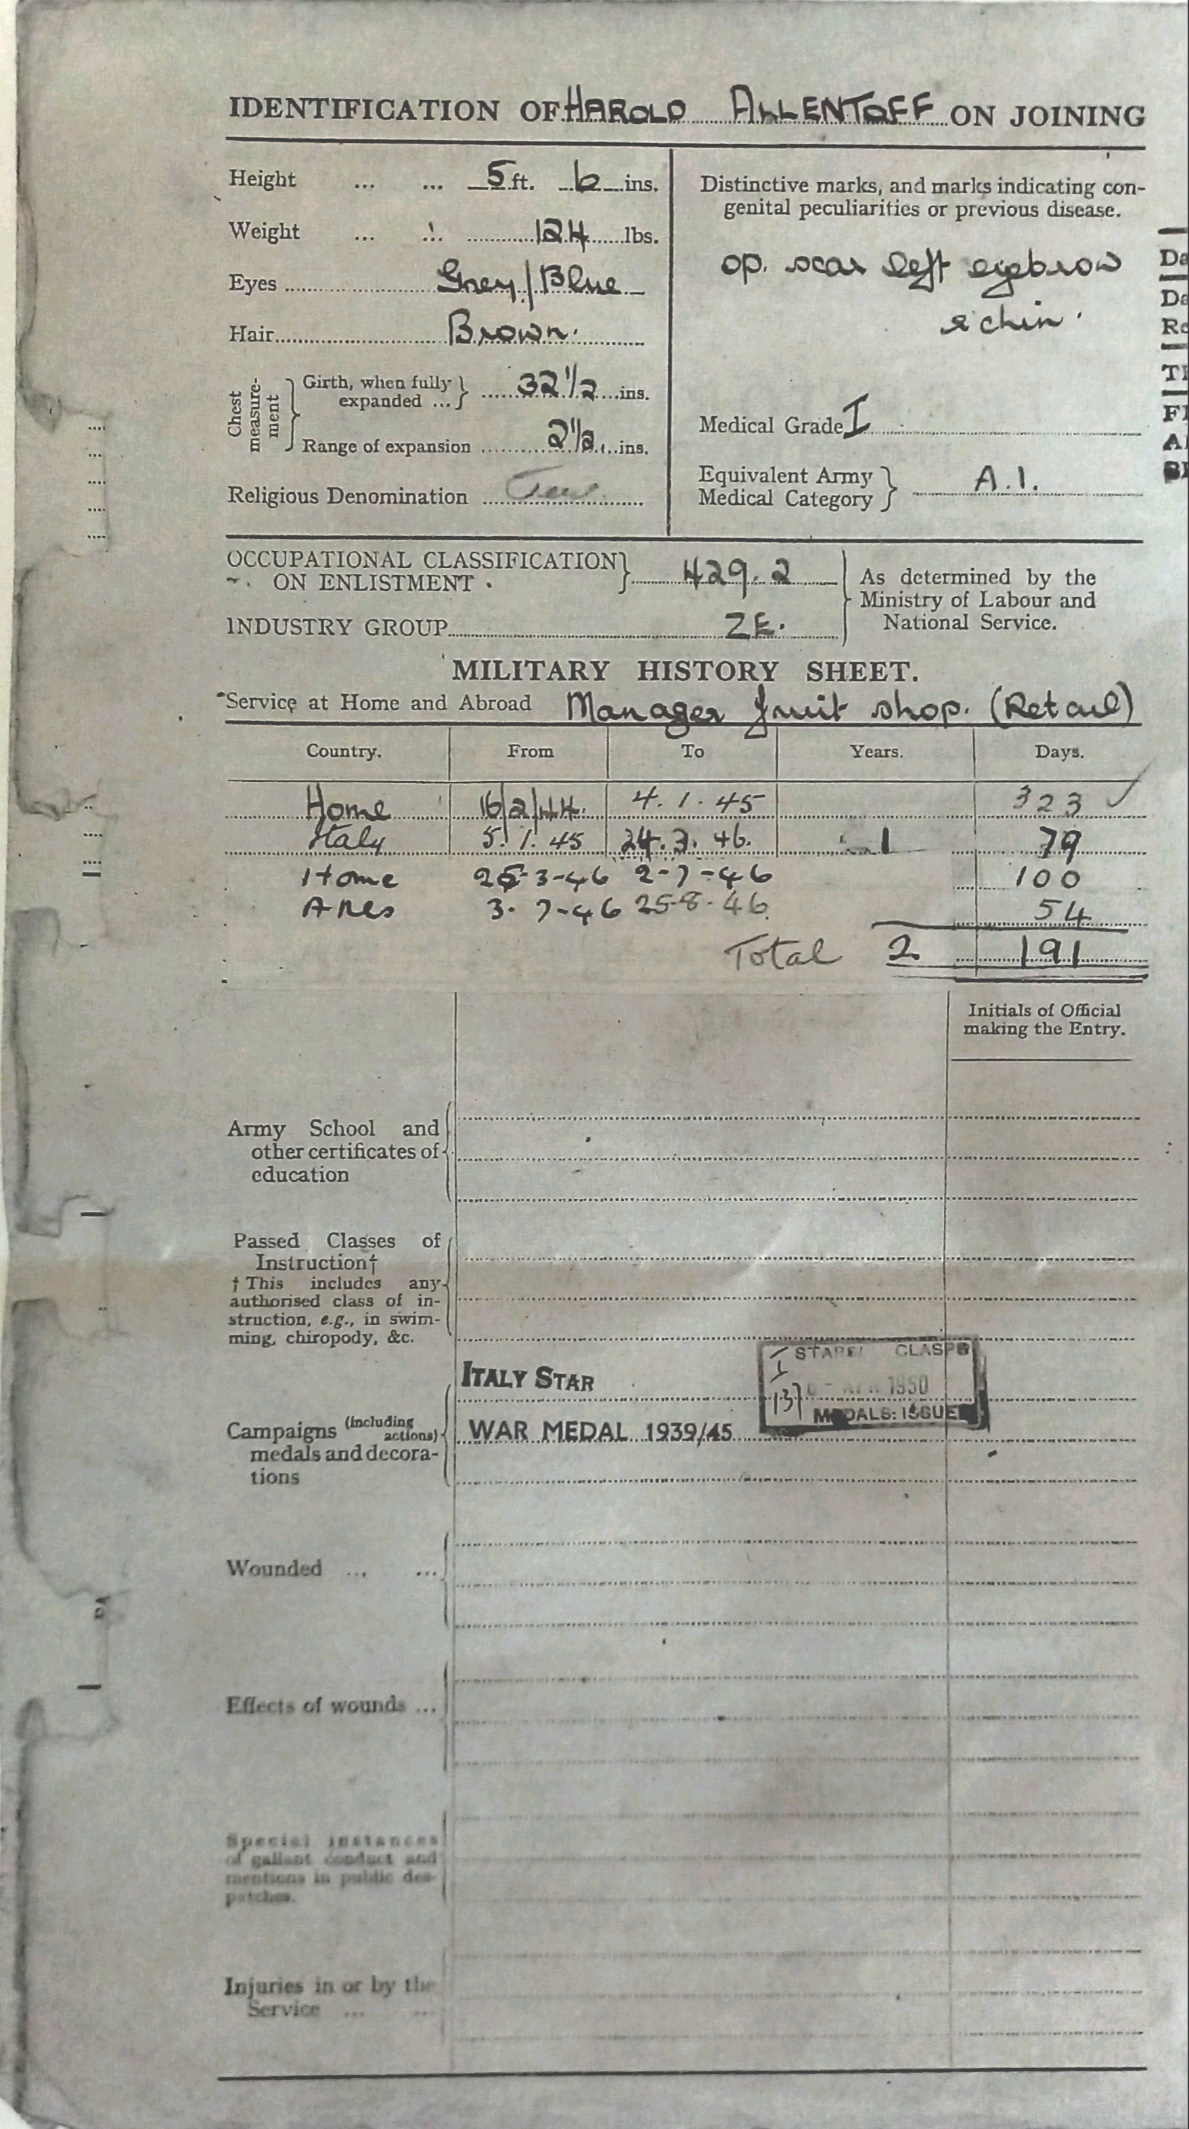 IDENTIFICATION OF HAROLD ALLENTOFF ON JOINING
Height ... ... 5 ft. 6 ins.
Weight ... ... 124 lbs.
Eyes Grey/Blue
Hair Brown.
Chest measure-ment
Girth, when fully expanded ... 32 1/2 ins.
Range of expansion 2 1/2 ins.
Religious Denomination Jew
Distinctive marks, and marks indicating con-
genital peculiarities or previous disease.
op. scar left eyebrow
& chin.
Medical Grade I
Equivalent Army
Medical Category A.1.
OCCUPATIONAL CLASSIFICATION
ON ENLISTMENT 429.2
INDUSTRY GROUP ZE.
As determined by the
Ministry of Labour and
National Service.
MILITARY HISTORY SHEET.
Service at Home and Abroad Manager fruit shop. (Retail)
Country. From To Years. Days.
Home 16/2/44. 4.1.45 323
Italy 5.1.45 24.3.46. 1 79
Home 25-3-46 2-7-46 100
ARes 3-7-46 25-8-46 54
Total 2 191
Initials of Official
making the Entry.
Army School and
other certificates of
education
Passed Classes of
Instruction†
† This includes any
authorised class of in-
struction, e.g., in swim-
ming, chiropody, &c.
Campaigns (including actions)
medals and decora-
tions
ITALY STAR
WAR MEDAL 1939/45
CLASPS
1950
137
MEDALS: ISSUED
Wounded ... ...
Effects of wounds ...
Special instances
of gallant conduct and
mentions in public des-
patches.
Injuries in or by the
Service ... ...
Da
Da
Re